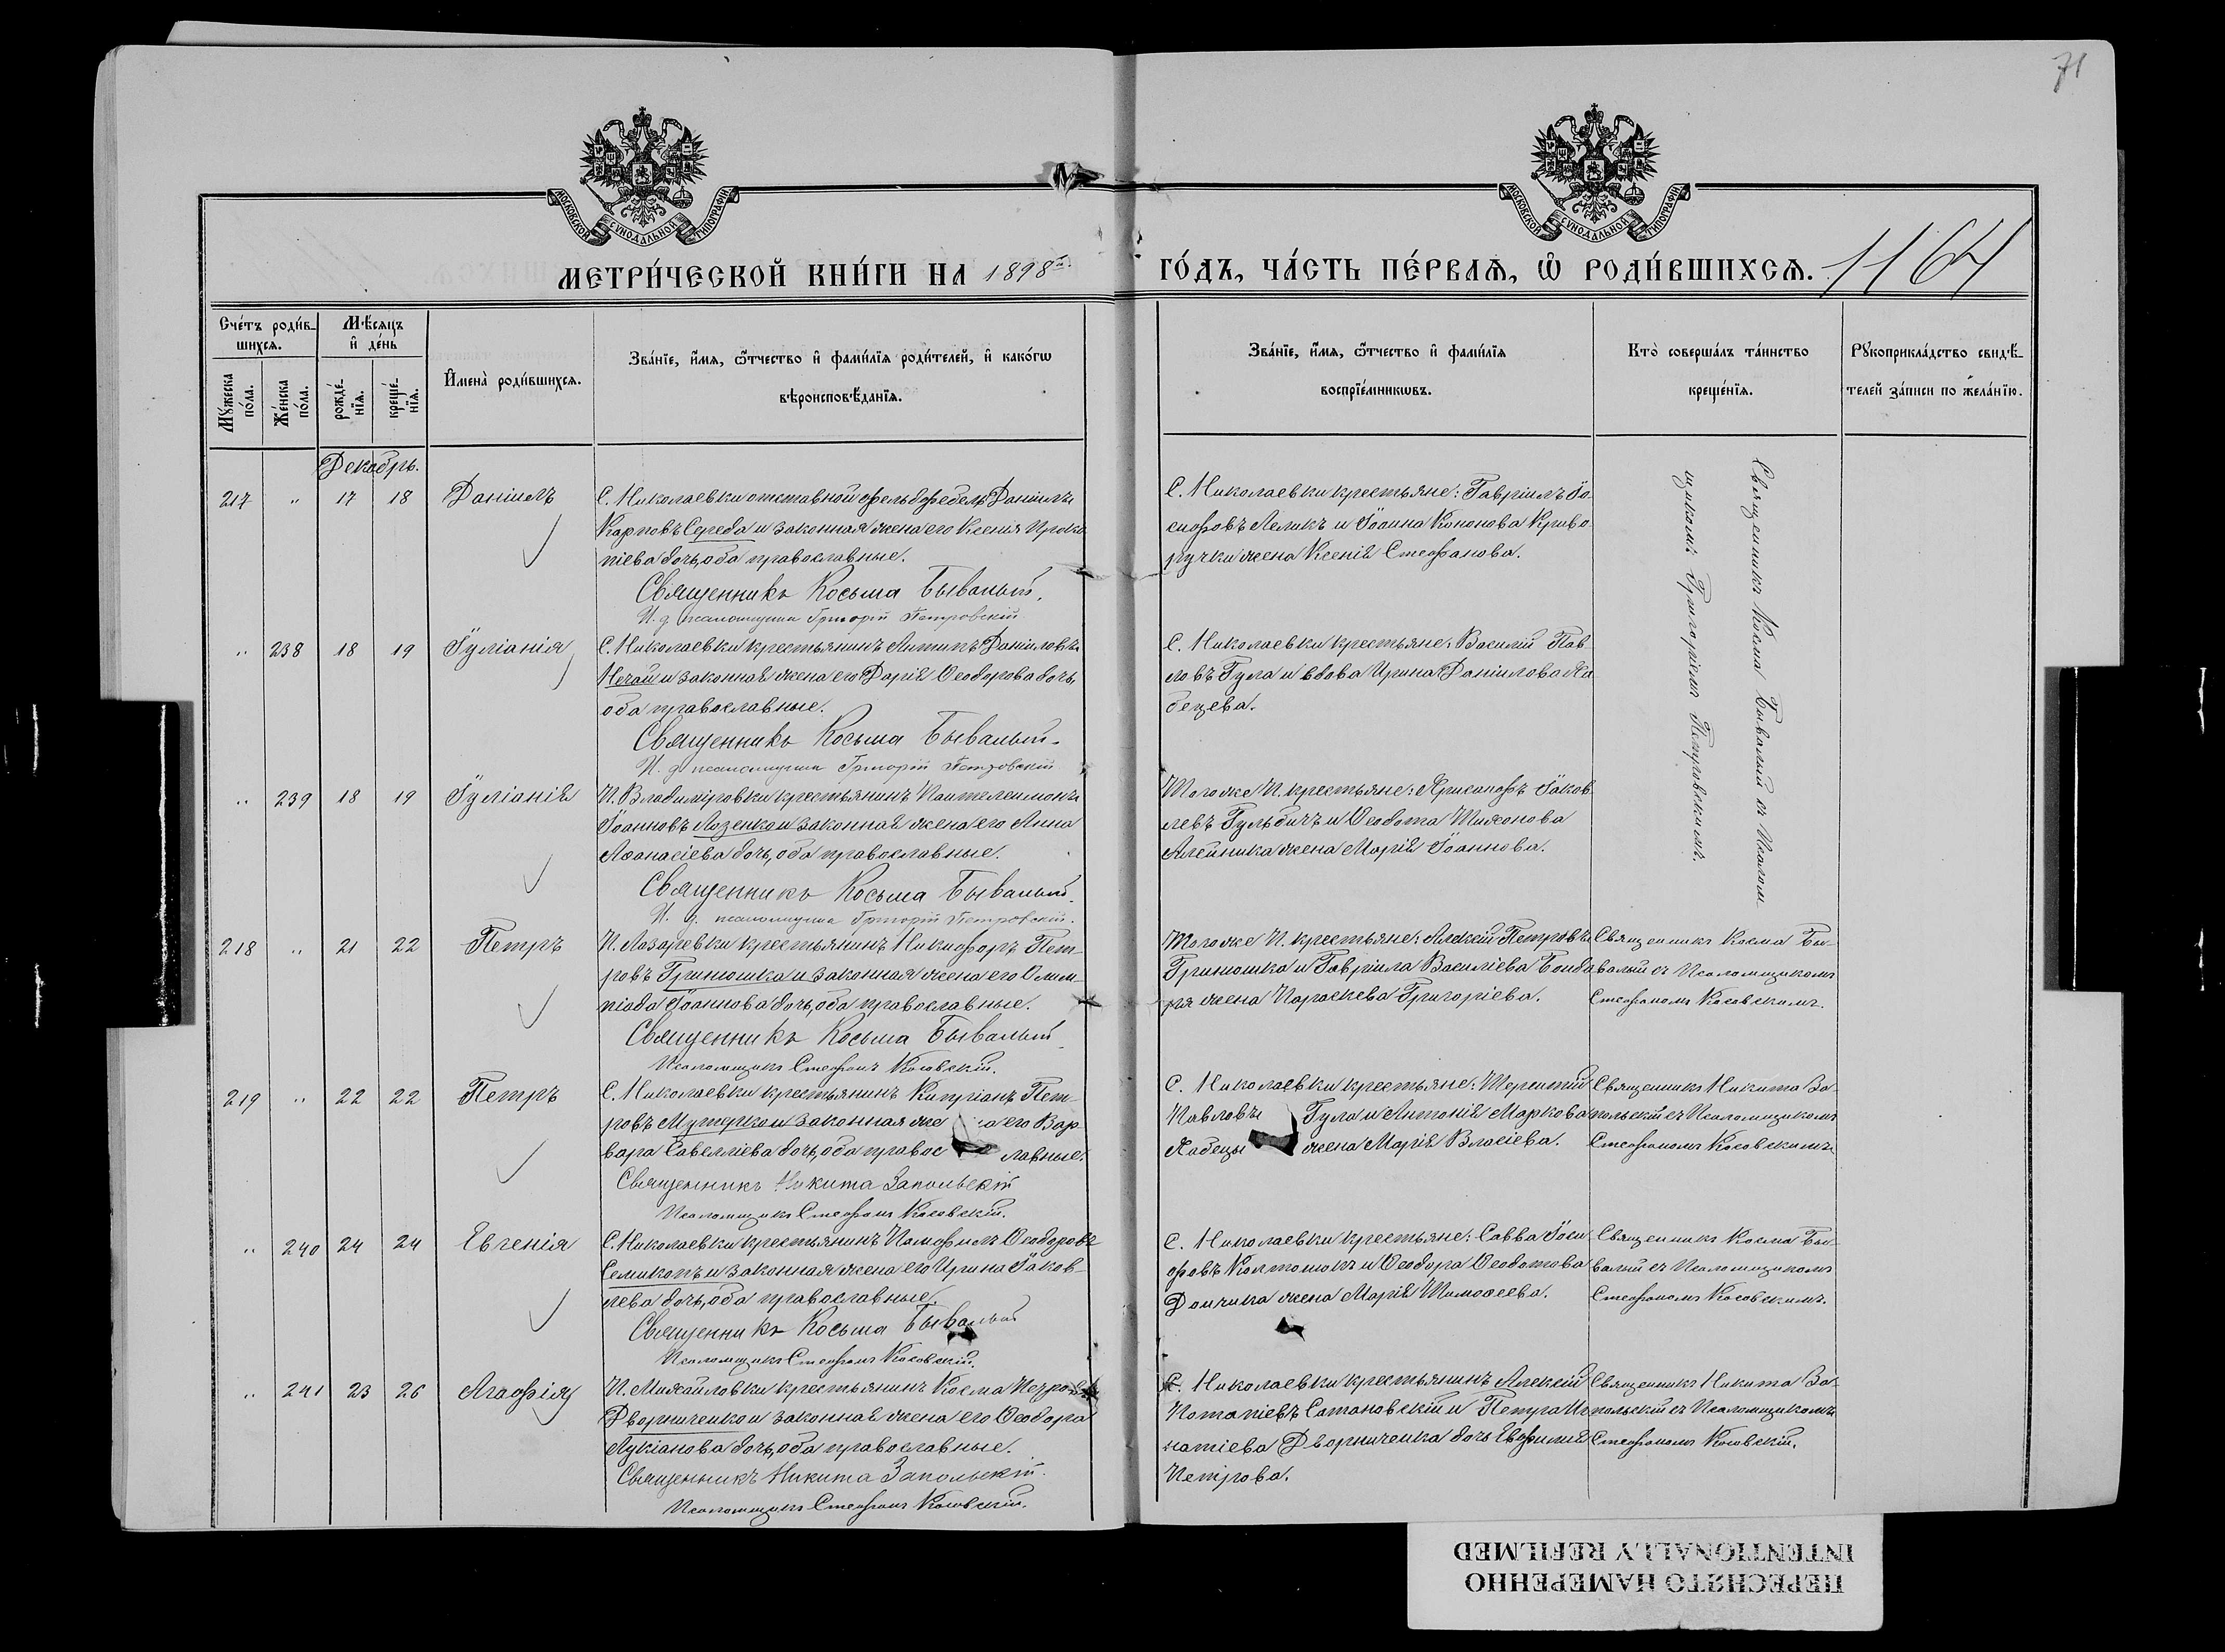 71
МОСКОВСКОЙ СѴНОДАЛЬНОЙ ТИПОГРАФІИ
МОСКОВСКОЙ СѴНОДАЛЬНОЙ ТИПОГРАФІИ
МЕТРИ́ЧЕСКОЙ КНИ́ГИ НА 1898й
ГО́ДЪ, ЧА́СТЬ ПЕ́РВАѦ, Ѽ РОДИ́ВШИХСѦ. 1164
Сче́тъ роди́в-
шихсѧ.
Мѣ́сяцъ
и҆ де́нь
Мꙋ́жеска
по́ла.
Же́нска
по́ла.
рожде́-
нїѧ.
креще́-
нїѧ.
И҆мена̀ роди́вшихсѧ.
Зва́нїе, и҆́мѧ, ѻ҆́тчество и҆ фами́лїѧ роди́телей, и҆ како́гѡ
вѣроисповѣ́данїѧ.
Зва́нїе, и҆́мѧ, ѻ҆́тчество и҆ фами́лїѧ
воспрїе́мникѡвъ.
Кто̀ соверша́лъ та́инство
креще́нїѧ.
Рꙋкоприкла́дство свидѣ́-
телей за́писи по жела́нїю.
Декабрь.
217 " 17 18 Даніилъ
С. Николаевки отставной фельдфебель Даніилъ
Карповъ Середа и законная жена его Ксенія Проко
піева дочь, оба православные.
Священникъ Косьма Бывалый.
И. д. псаломщика Григорій Петровскій
С. Николаевки крестьяне: Гавріилъ Іо
сифовъ Леликъ и Іоанна Кононова Криво
ручки жена Ксенія Стефанова.
Священникъ Косма Бывалый съ Псалом
щикомъ Григоріемъ Петровскимъ.
" 238 18 19 Іуліанія
С. Николаевки крестьянинъ Антипъ Даніиловъ
Нечай и законная жена его Дарія Ѳеодорова дочь,
оба православные.
Священникъ Косьма Бывалый.
И. д. псаломщика Григорій Петровскій
С. Николаевки крестьяне: Василій Пав-
ловъ Гула и вдова Ирина Даніилова Ха
бецева.
" 239 18 19 Іуліанія
П. Владиміровки крестьянинъ Пантелеимонъ
Іоанновъ Лозенко и законная жена его Анна
Аѳанасіева дочь, оба православные.
Священникъ Косьма Бывалый.
И. д. псаломщика Григорій Петровскій.
Тогоже П. крестьяне: Хрисанфъ Іаков
левъ Гульбичъ и Ѳеодота Тихонова
Алейника жена Марія Іоаннова.
218 " 21 22 Петръ
П. Лазаревки крестьянинъ Никифоръ Пет-
ровъ Гринюшка и законная жена его Олим-
піада Іоаннова дочь, оба православные.
Священникъ Косьма Бывалый
Псаломщикъ Стефанъ Косовскій.
Тогоже П. крестьяне: Алексій Петровъ
Гринюшка и Гавріила Василіева Бонда
ря жена Параскева Григоріева.
Священникъ Косма Бы-
валый съ Псаломщикомъ
Стефаномъ Косовскимъ.
219 " 22 22 Петръ
С. Николаевки крестьянинъ Кипріанъ Пет-
ровъ и законная же а его Вар
вара Савелліева дочь, оба правос лавные.
Священникъ Никита Запольскій
Псаломщикъ Стефанъ Косовскій.
С. Николаевки крестьяне: Терентій
Павловъ Гула и Антонія Маркова
Хабецы жена Марія Власіева.
Священникъ Никита За-
польскій съ Псаломщикомъ
Стефаномъ Косовскимъ
" 240 24 24 Евгенія
С. Николаевки крестьянинъ Памфилъ Ѳеодоровъ
Семикопъ и законная жена его Ирина Іаков-
лева дочь, оба православные.
Священникъ Косьма Бывалый
Псаломщикъ Стефанъ Косовскій.
С. Николаевки крестьяне: Савва Іоси
фовъ Колтонюкъ и Ѳеодора Ѳеодотова
Дончика жена Марія Тимоѳеева.
Священникъ Косма Бы-
валый съ Псаломщикомъ
Стефаномъ Косовскимъ.
" 241 23 26 Агафія
П. Михайловки крестьянинъ Косма Петровъ
Дворниченко и законная жена его Ѳеодора
Лукіанова дочь, оба православные.
Священникъ Никита Запольскій.
Псаломщикъ Стефанъ Косовскій.
С. Николаевки крестьянинъ Алексій
Потапіевъ Сатановскій и Петра Иг
натіева Дворниченка дочь Евфимія
Петрова.
Священникъ Никита За-
польскій съ Псаломщикомъ
Стефаномъ Косовскій.
ПЕРЕСНЯТО НАМЕРЕННО
INTENTIONALLY REFILMED